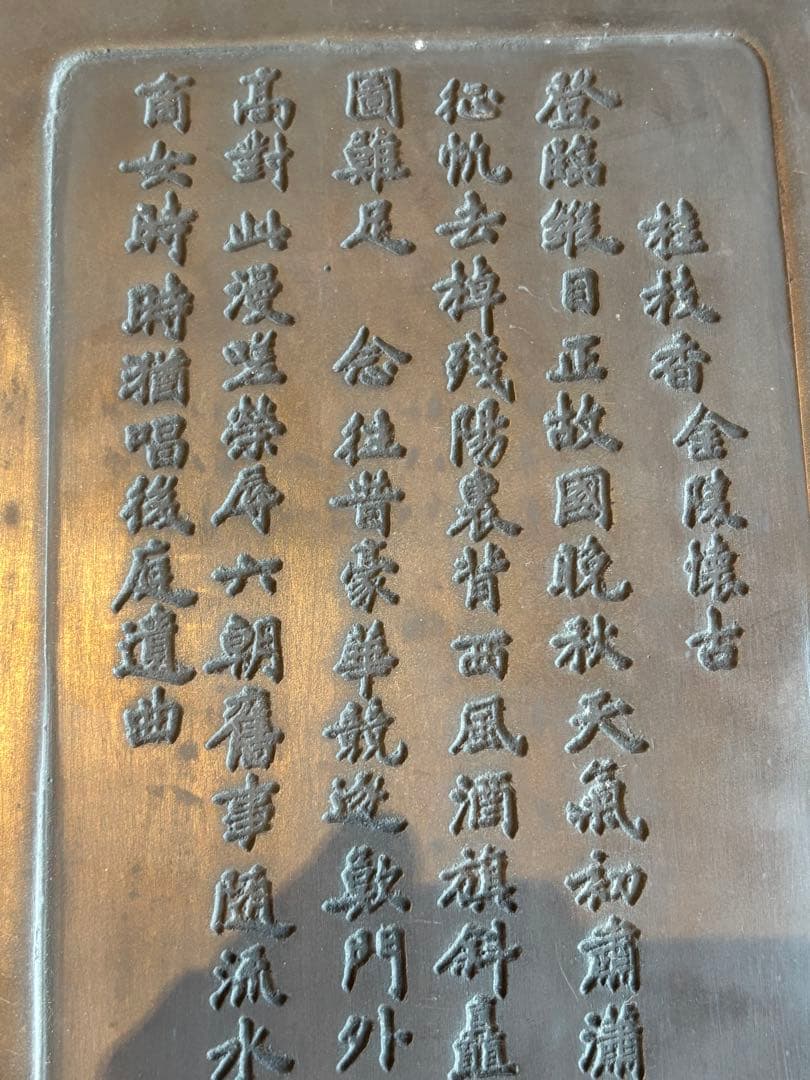 桂枝香金陵懷古
登臨縱目正故國晚秋天氣初肅瀟
征帆去棹殘陽裏背西風酒旗斜矗
圖難足　念往昔豪華競逐歎門外
高對此漫嗟榮辱六朝舊事隨流水
商女時時猶唱後庭遺曲